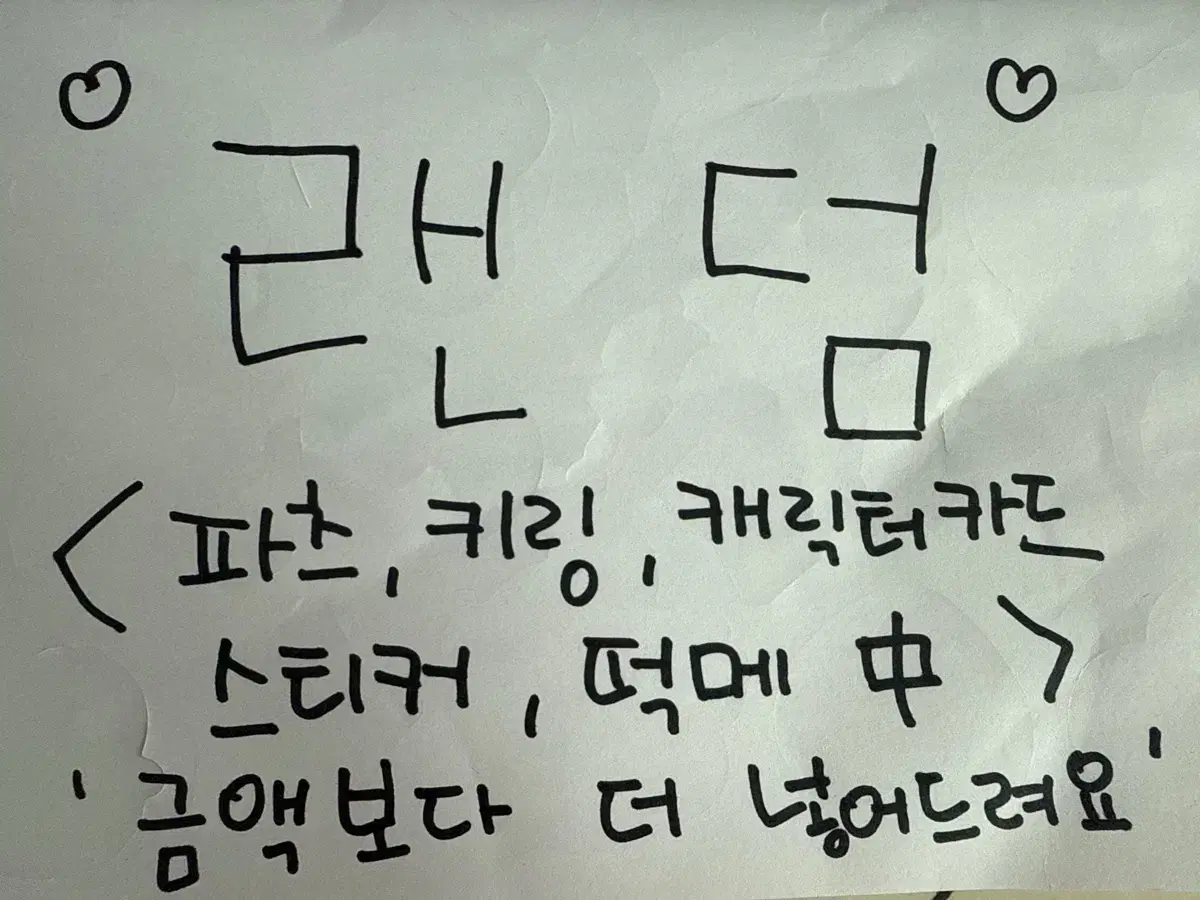 ♡ ♡
랜덤
<파츠, 키링, 캐릭터카드
스티커, 떡메 中>
'금액보다 더 넣어드려요'